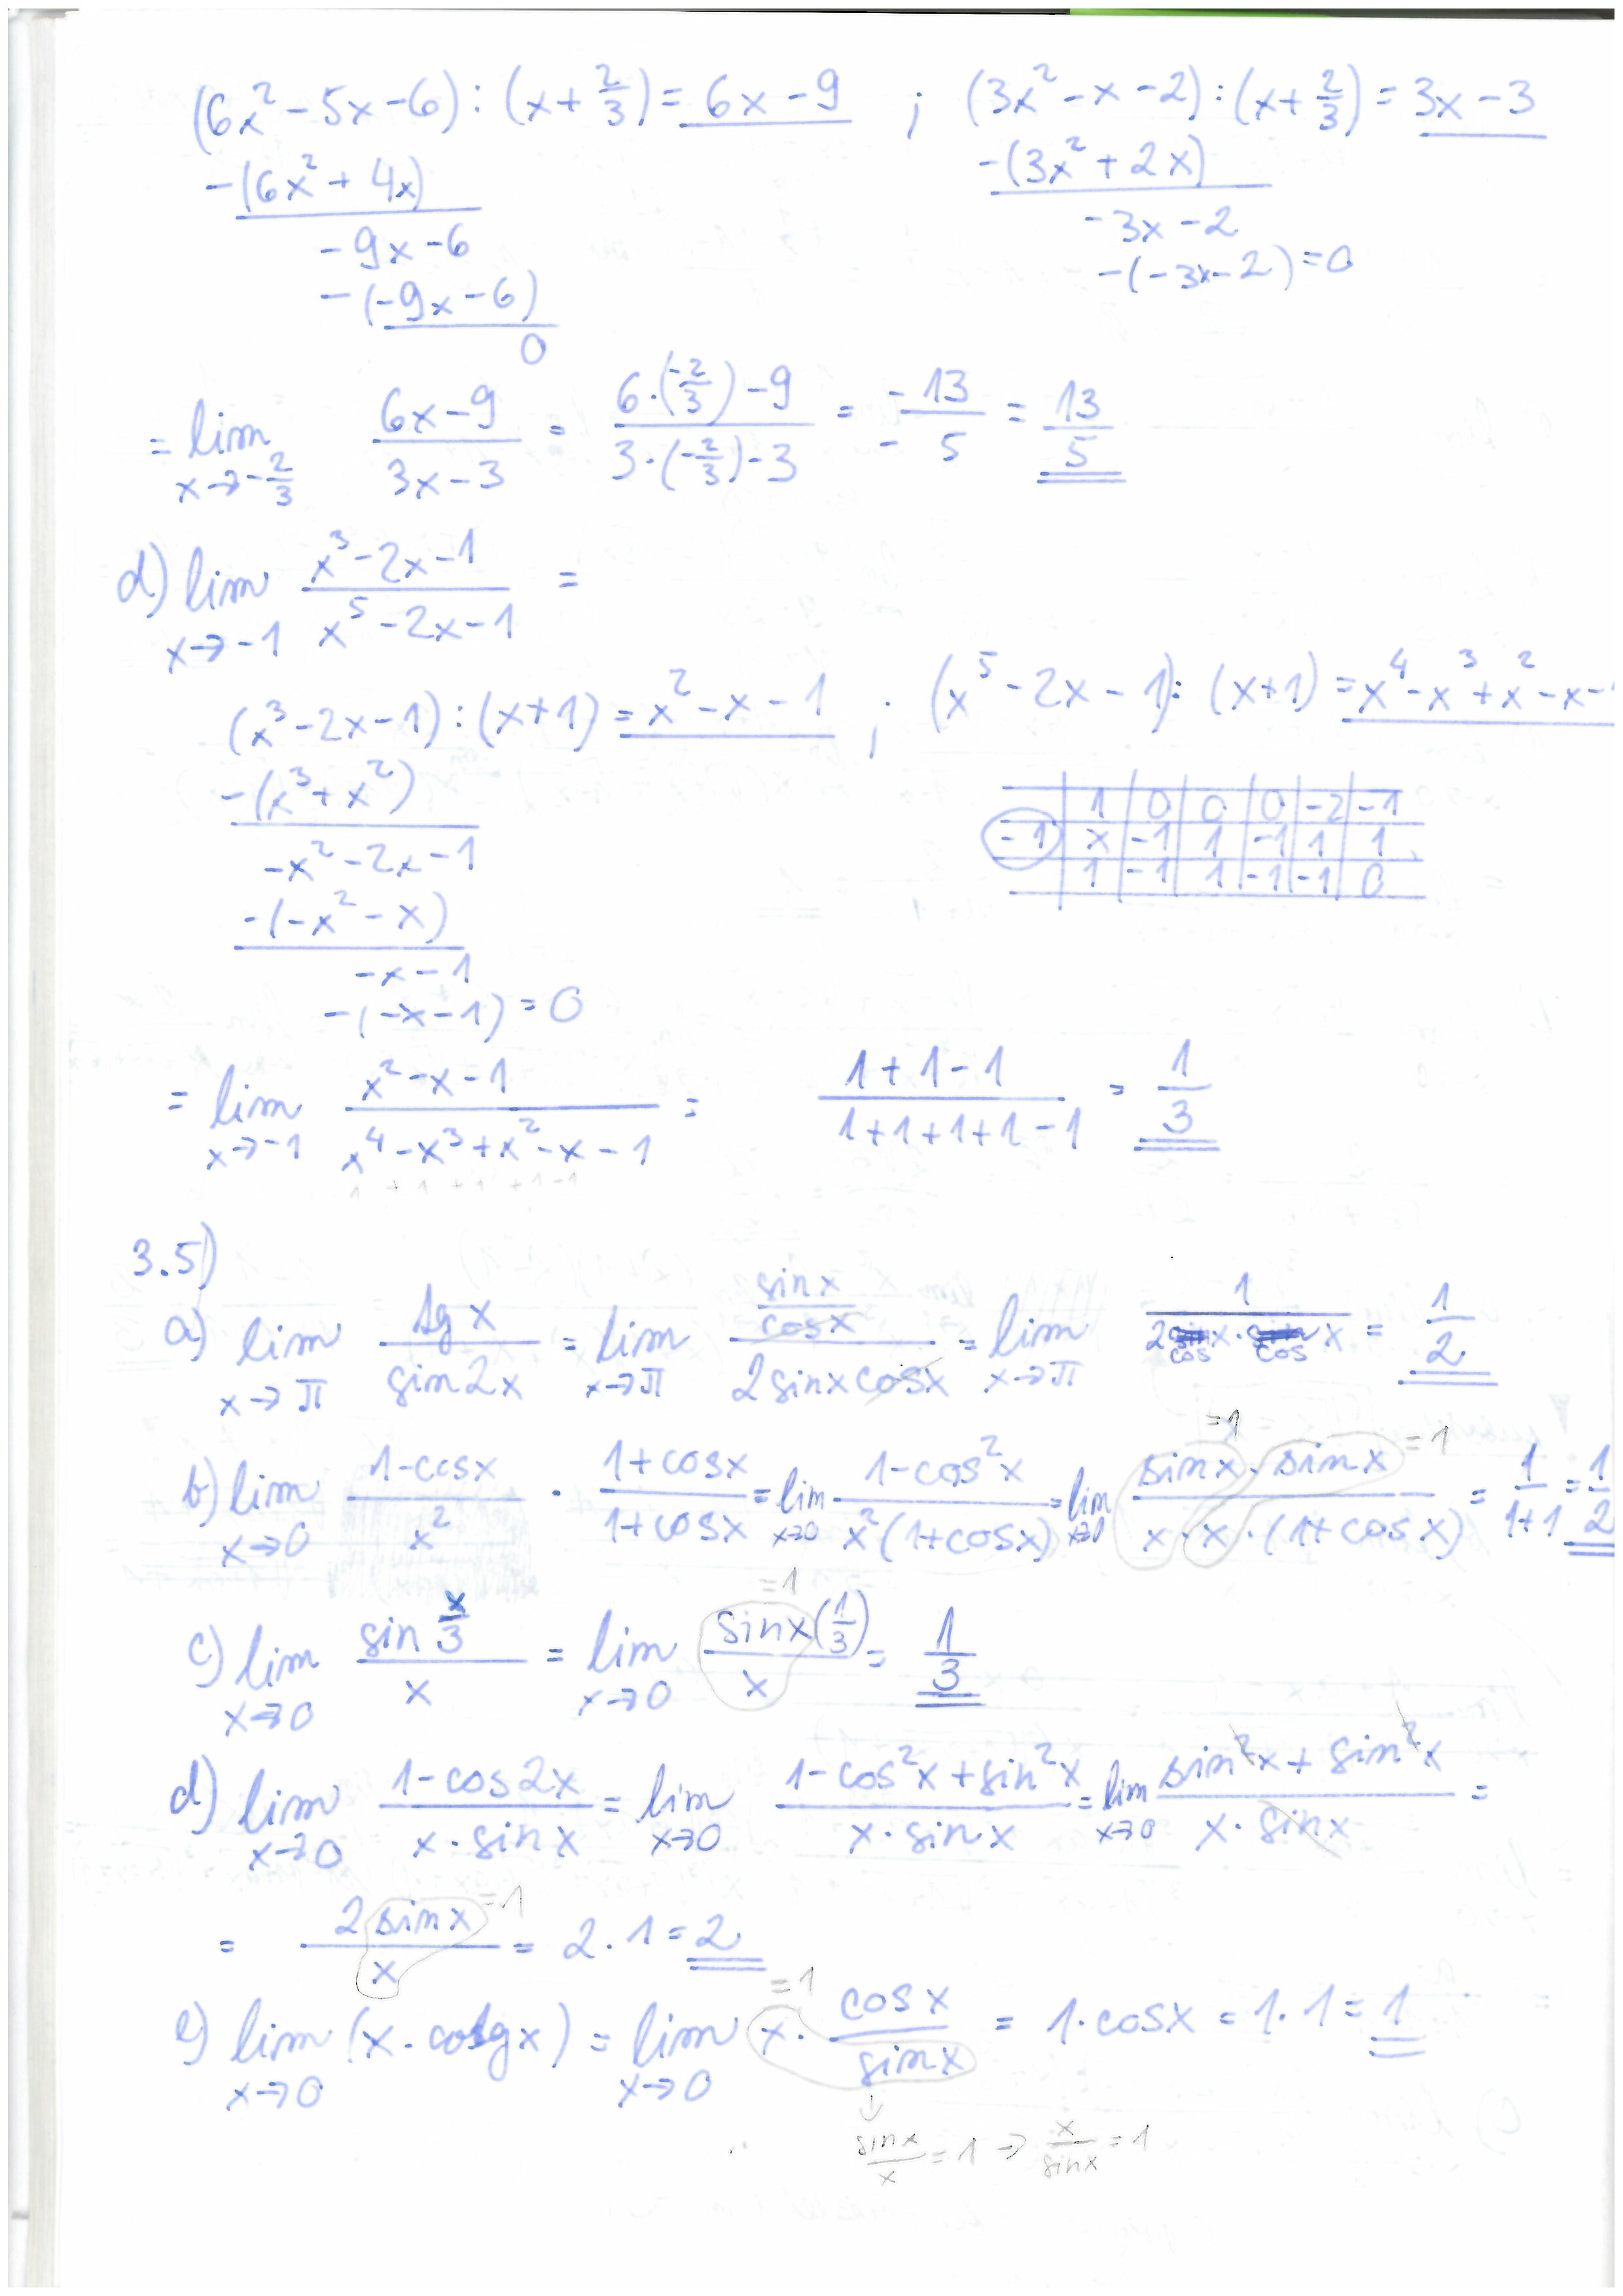 (6x² - 5x - 6) : (x + 2/3) = 6x - 9 ; (3x² - x - 2) : (x + 2/3) = 3x - 3
-(6x² + 4x) -(3x² + 2x)
-9x - 6 -3x - 2
-(-9x - 6) -(-3x - 2) = 0
0
= lim x→-2/3 (6x - 9)/(3x - 3) = (6·(-2/3) - 9)/(3·(-2/3) - 3) = -13/-5 = 13/5
d) lim x→-1 (x³ - 2x - 1)/(x⁵ - 2x - 1) =
(x³ - 2x - 1) : (x + 1) = x² - x - 1 ; (x⁵ - 2x - 1) : (x+1) = x⁴ - x³ + x² - x -
-(x³ + x²)
-x² - 2x - 1
-(-x² - x)
-x - 1
-(-x - 1) = 0
1 | 0 | 0 | 0 | -2 | -1
-1 | x | -1 | 1 | -1 | 1 | 1
1 | -1 | 1 | -1 | -1 | 0
= lim x→-1 (x² - x - 1)/(x⁴ - x³ + x² - x - 1) = (1 + 1 - 1)/(1+1+1+1-1) = 1/3
1 +1 +1 +1 -1
3.5)
a) lim x→π tg x/sin 2x = lim x→π (sin x/cos x)/(2 sin x cos x) = lim x→π 1/(2 cos x · cos x) = 1/2
b) lim x→0 (1 - cos x)/x² · (1 + cos x)/(1 + cos x) = lim x→0 (1 - cos² x)/(x²(1+cos x)) = lim x→0 (sin x · sin x)/(x · x · (1+cos x)) = 1/(1+1) = 1/2
=1 =1
c) lim x→0 (sin x/3)/x = lim x→0 (sin x (1/3))/x = 1/3
=1
d) lim x→0 (1 - cos 2x)/(x · sin x) = lim x→0 (1 - cos² x + sin² x)/(x · sin x) = lim x→0 (sin² x + sin² x)/(x · sin x) =
= 2 sin x/x = 2 · 1 = 2
=1
e) lim x→0 (x · cotg x) = lim x→0 x · cos x/sin x = 1 · cos x = 1 · 1 = 1
=1
↓
sin x/x = 1 → x/sin x = 1